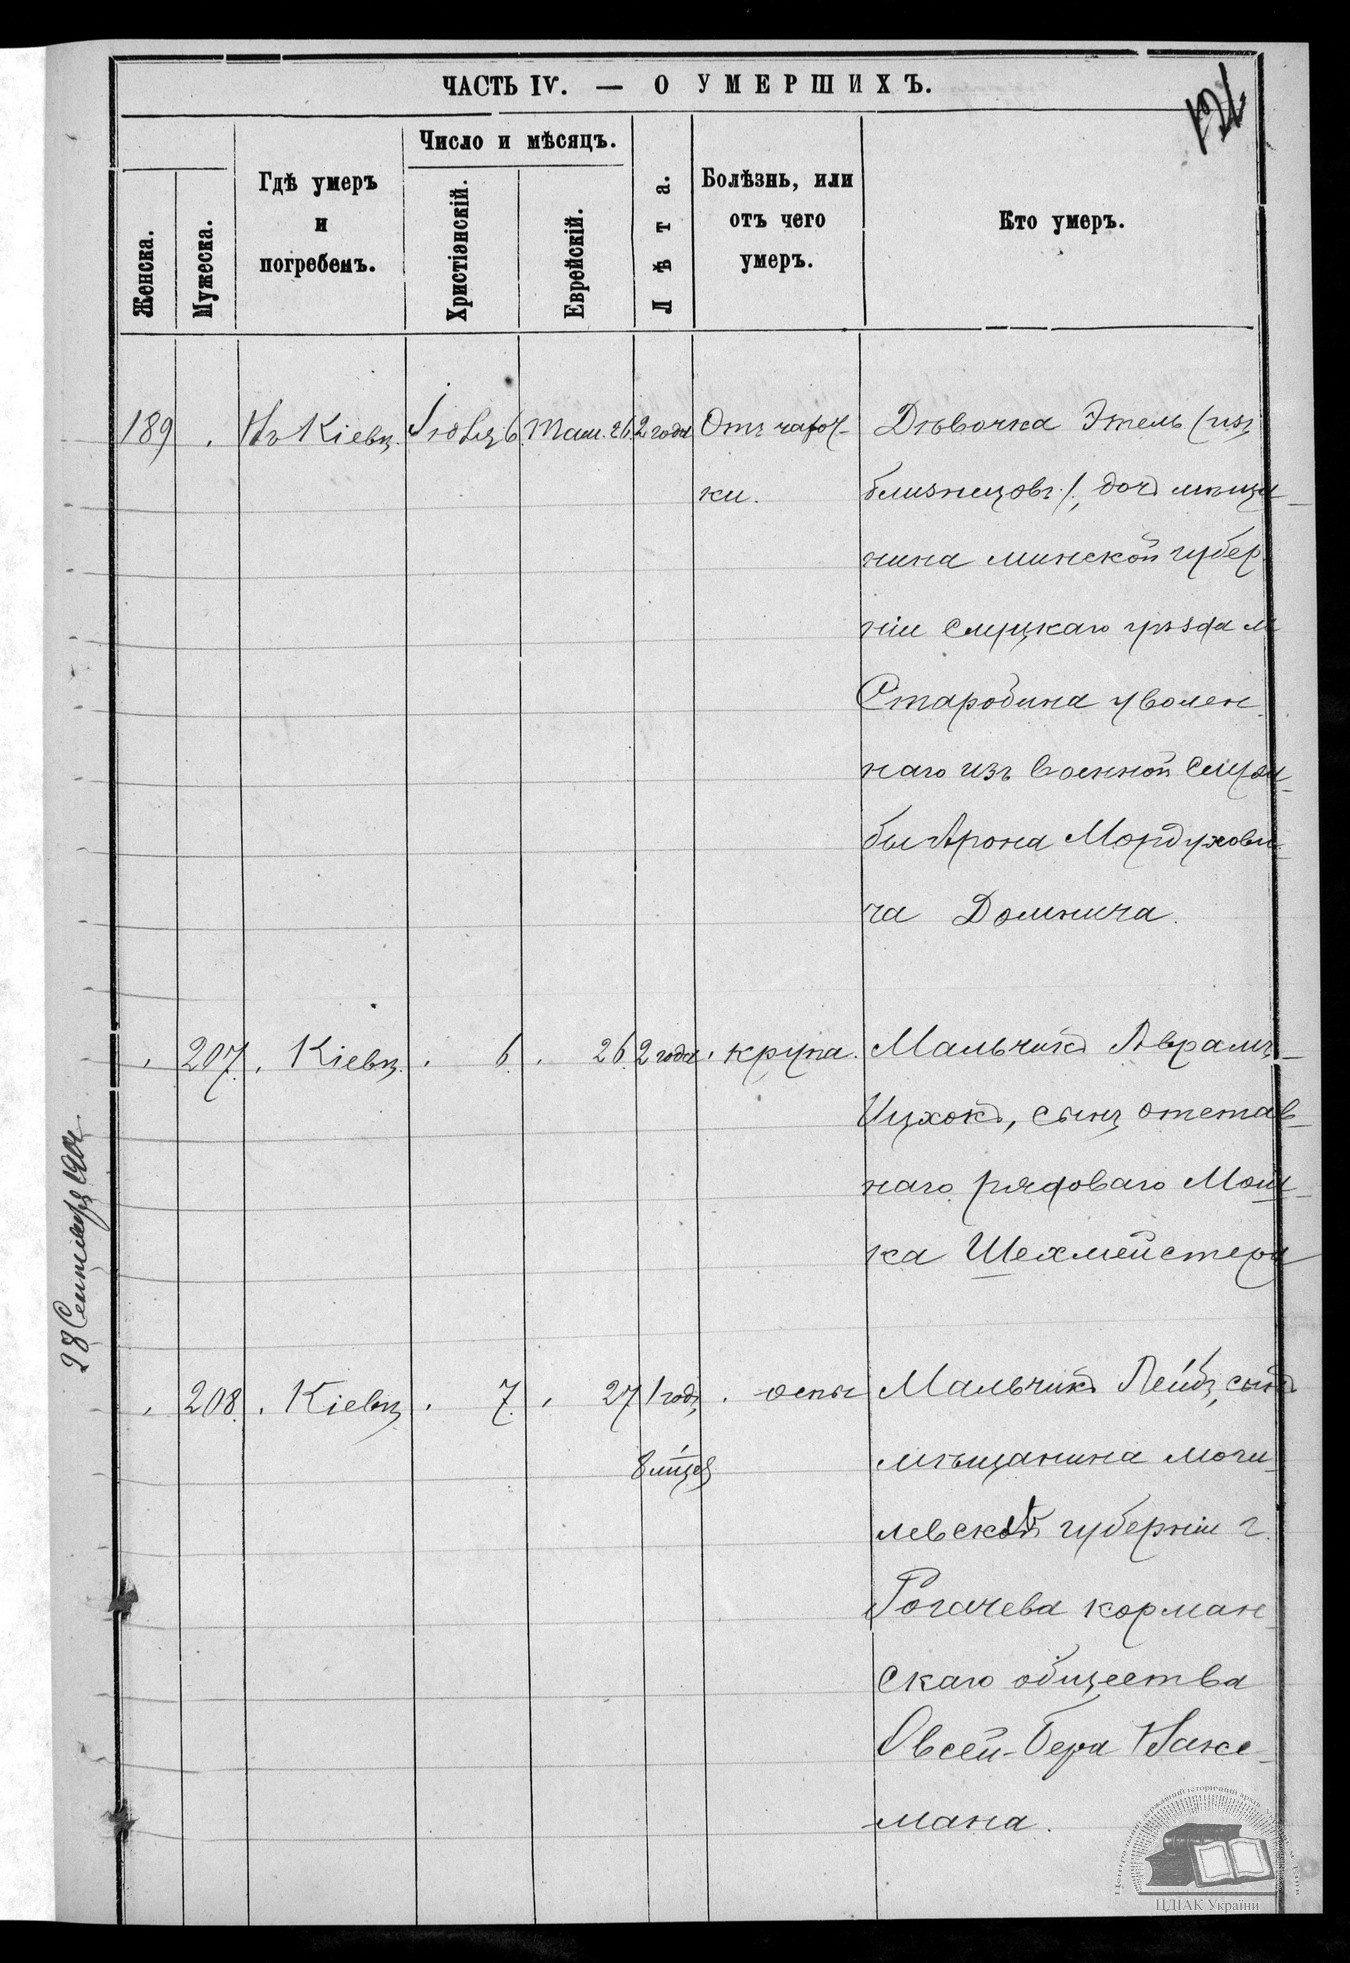 ЧАСТЬ IV. — О УМЕРШИХЪ.
Женска.
Мужеска.
Гдѣ умеръ
и
погребенъ.
Число и мѣсяцъ.
Христіанскій.
Еврейскій.
Лѣта.
Болѣзнь, или
отъ чего
умеръ.
Кто умеръ.
189 Въ Кіевѣ. 6 Там. 26 2 года Отъ
ки. Дѣвочка Этель (изъ
близнецовъ), дочь мѣща-
нина минской губер
ніи слуцкаго уѣзда м
Старобина уволен
наго изъ военной служ-
бы Арона Мордухови-
ча Домнича.
207. Кіевѣ. 6. 26. 2 года крупа. Мальчикъ Аврамъ-
Ицхокъ, сынъ отстав-
наго рядоваго Мош-
ка Шехмейстера
208. Кіевѣ 7. 27 1 годъ, оспы Мальчикъ Лейбъ, сынъ
8 мцев мѣщанина моги-
левской губерніи г.
Рогачева корман
скаго общества
Овсей-Бера Вакс-
мана.
28 Сентября 1904
ЦДІАК України